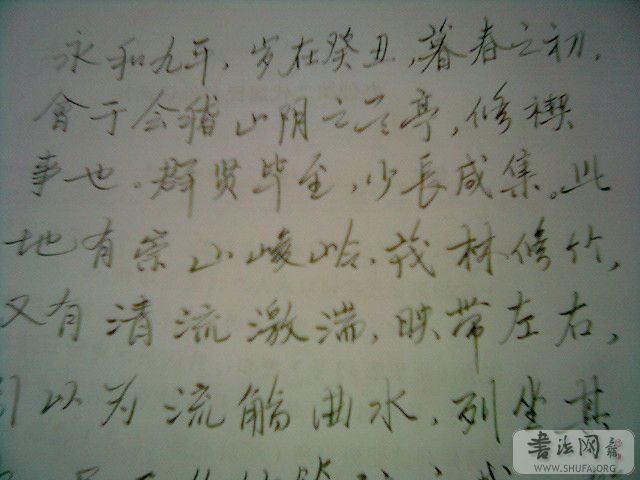 永和九年，岁在癸丑，暮春之初，
会于会稽山阴之兰亭，修禊
事也。群贤毕至，少長咸集。此
地有崇山峻岭，茂林修竹，
又有清流激湍，映带左右，
引以为流觞曲水，列坐其
书法网
WWW.SHUFA.ORG